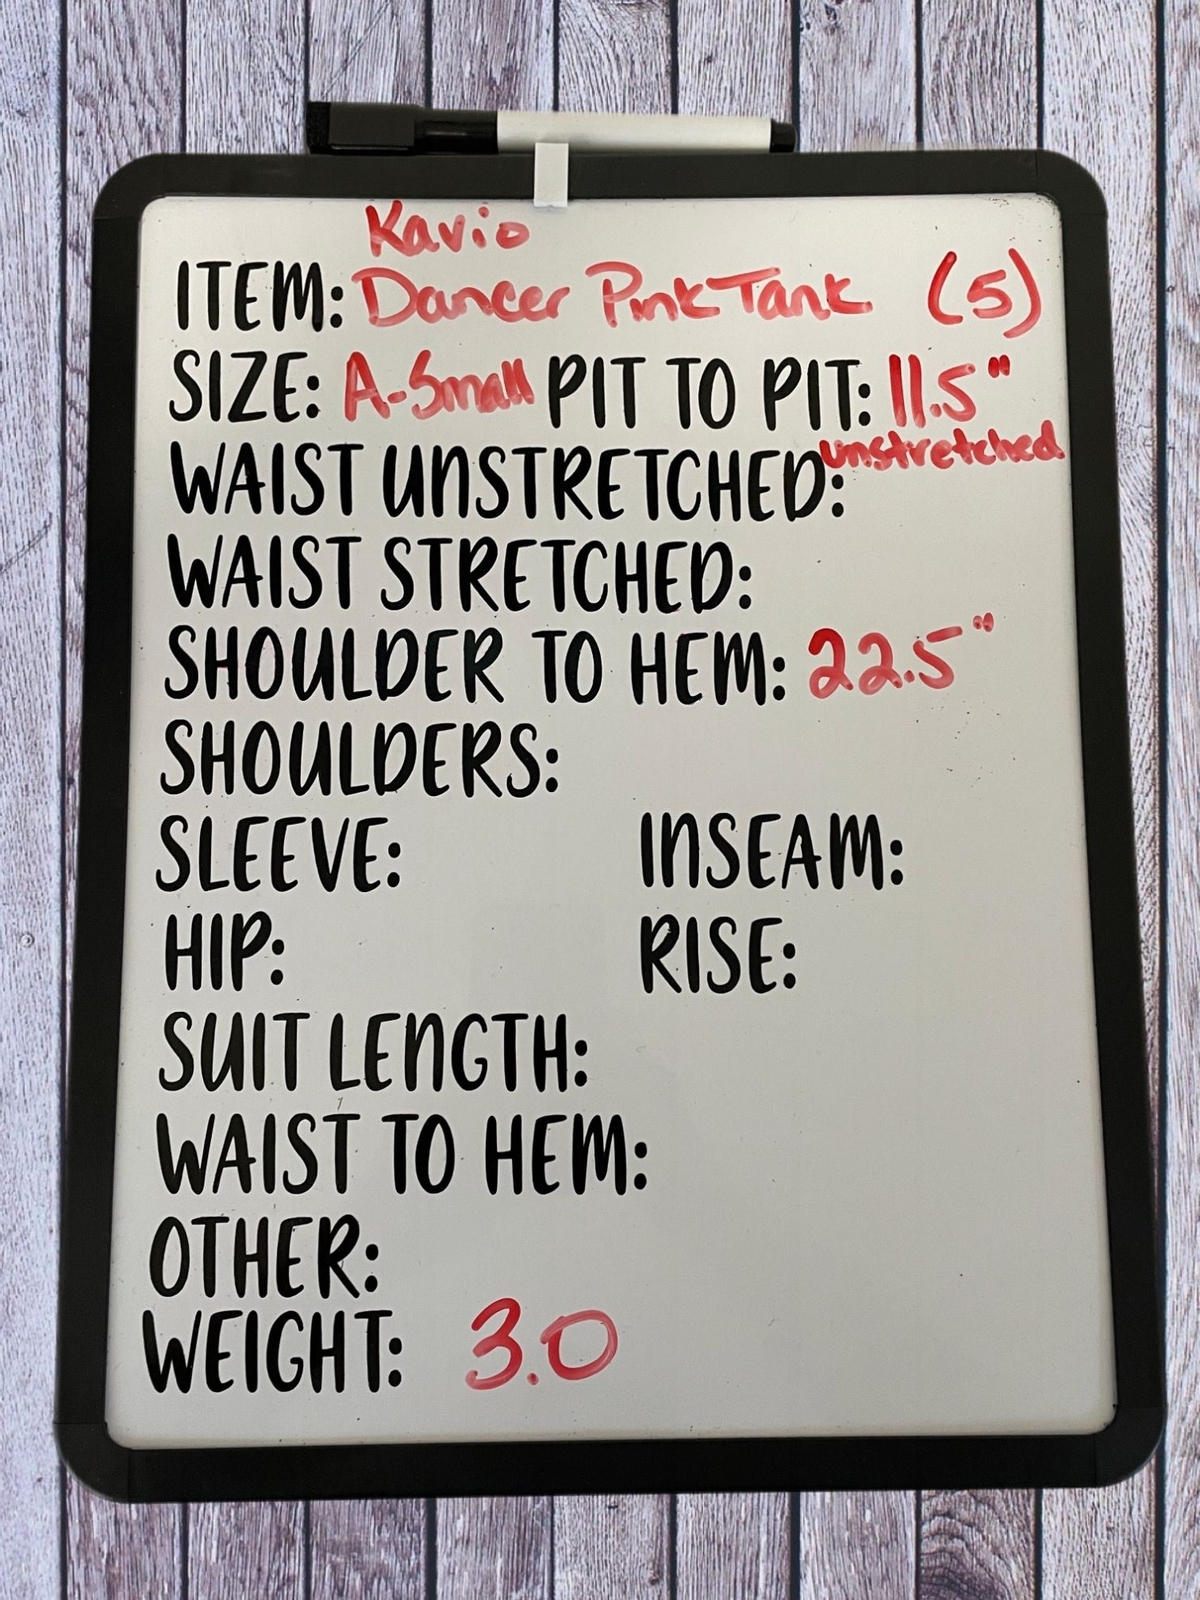 Kavio
ITEM: Dancer Pink Tank (5)
SIZE: A-Small PIT TO PIT: 11.5"
unstretched
WAIST UNSTRETCHED:
WAIST STRETCHED:
SHOULDER TO HEM: 22.5"
SHOULDERS:
SLEEVE: INSEAM:
HIP: RISE:
SUIT LENGTH:
WAIST TO HEM:
OTHER:
WEIGHT: 3.0